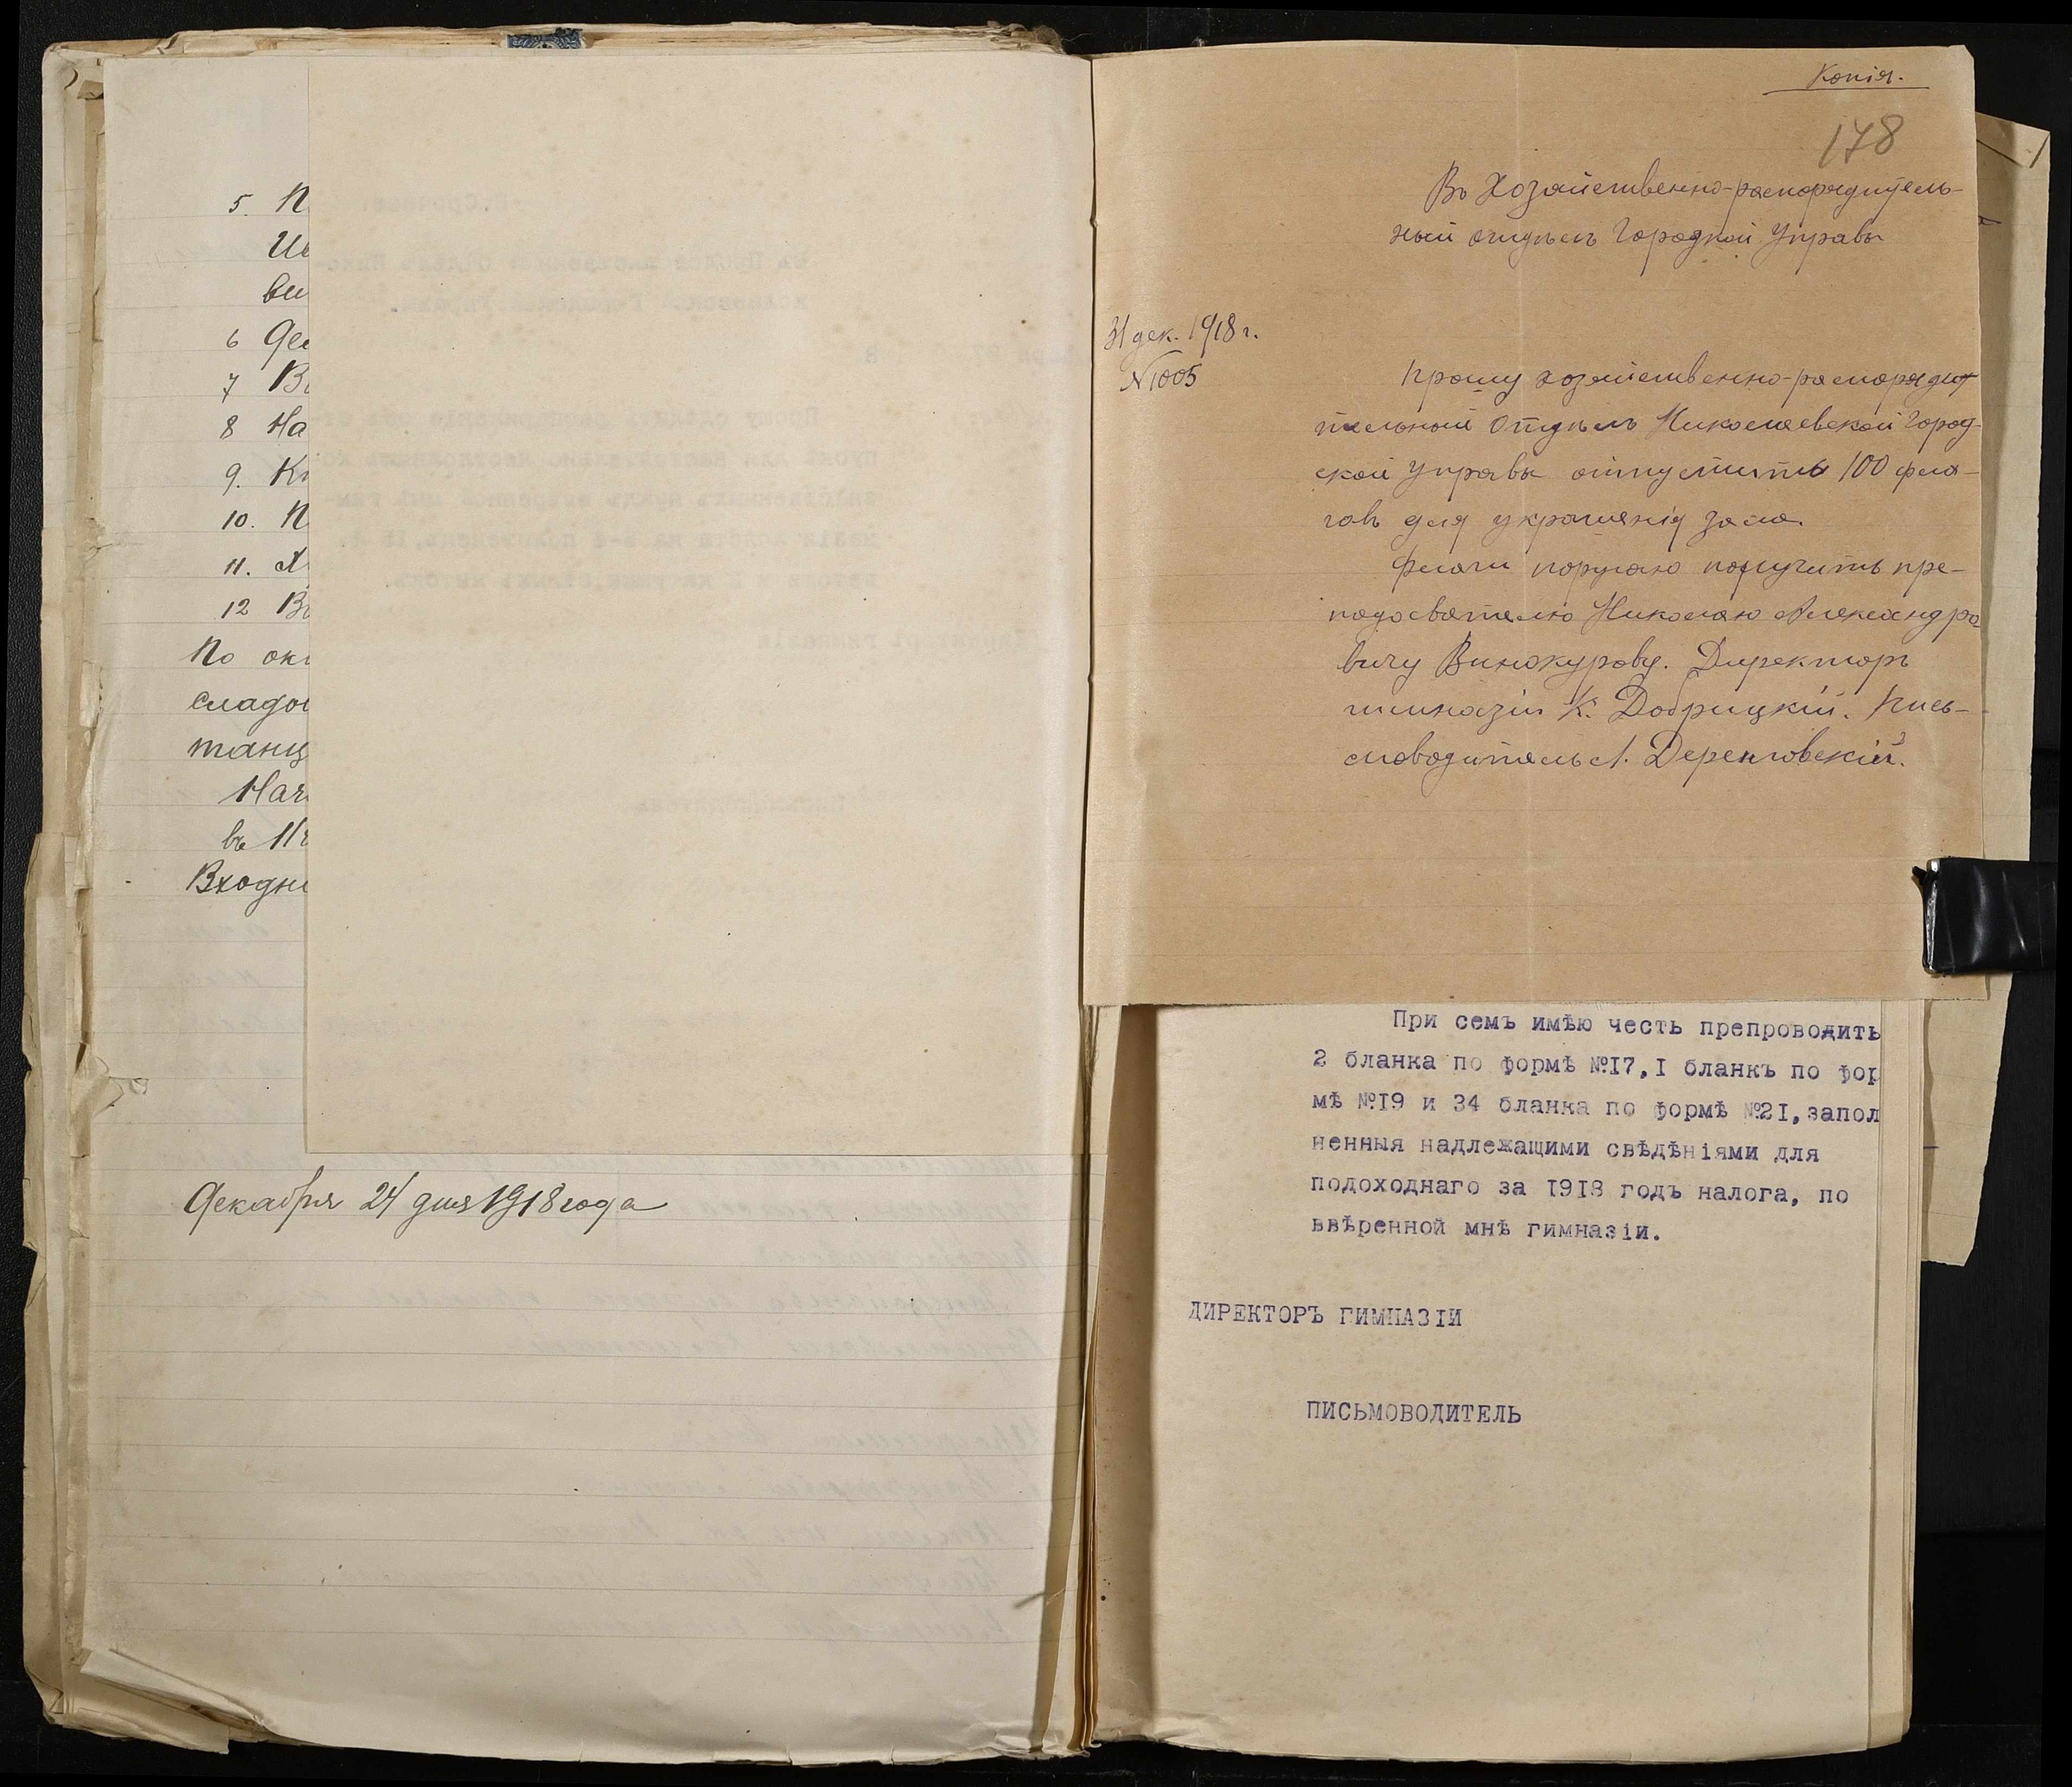 5. П
Ив
ви
6 Де
7 В
8 На
9. К
10. П
11. Х
12 В
По ок
сладо
танц
Нач
въ
Входн
Декабря 24 дня 1918 года
Копія.
178
Въ Хозяйственно-распорядитель-
ный отдѣлъ Городской Управы
31 дек. 1918 г.
№ 1005
Прошу хозяйственно-распоряди
тельный Отдѣлъ Николаевской Город-
ской Управы отпустить 100 фла-
говъ для украшенія зала.
Флаги поручаю получить пре-
подавателю Николаю Александро
вичу Винокурову. Директоръ
гимназіи К. Добрицкій. Пись-
моводитель А. Деренговскій.
При семъ имѣю честь препроводить
2 бланка по формѣ №I7, I бланкъ по фор
мѣ №I9 и 34 бланка по формѣ №2I, запол
ненныя надлежащими свѣдѣніями для
подоходнаго за I918 годъ налога, по
ввѣренной мнѣ гимназіи.
ДИРЕКТОРЪ ГИМНАЗІИ
ПИСЬМОВОДИТЕЛЬ